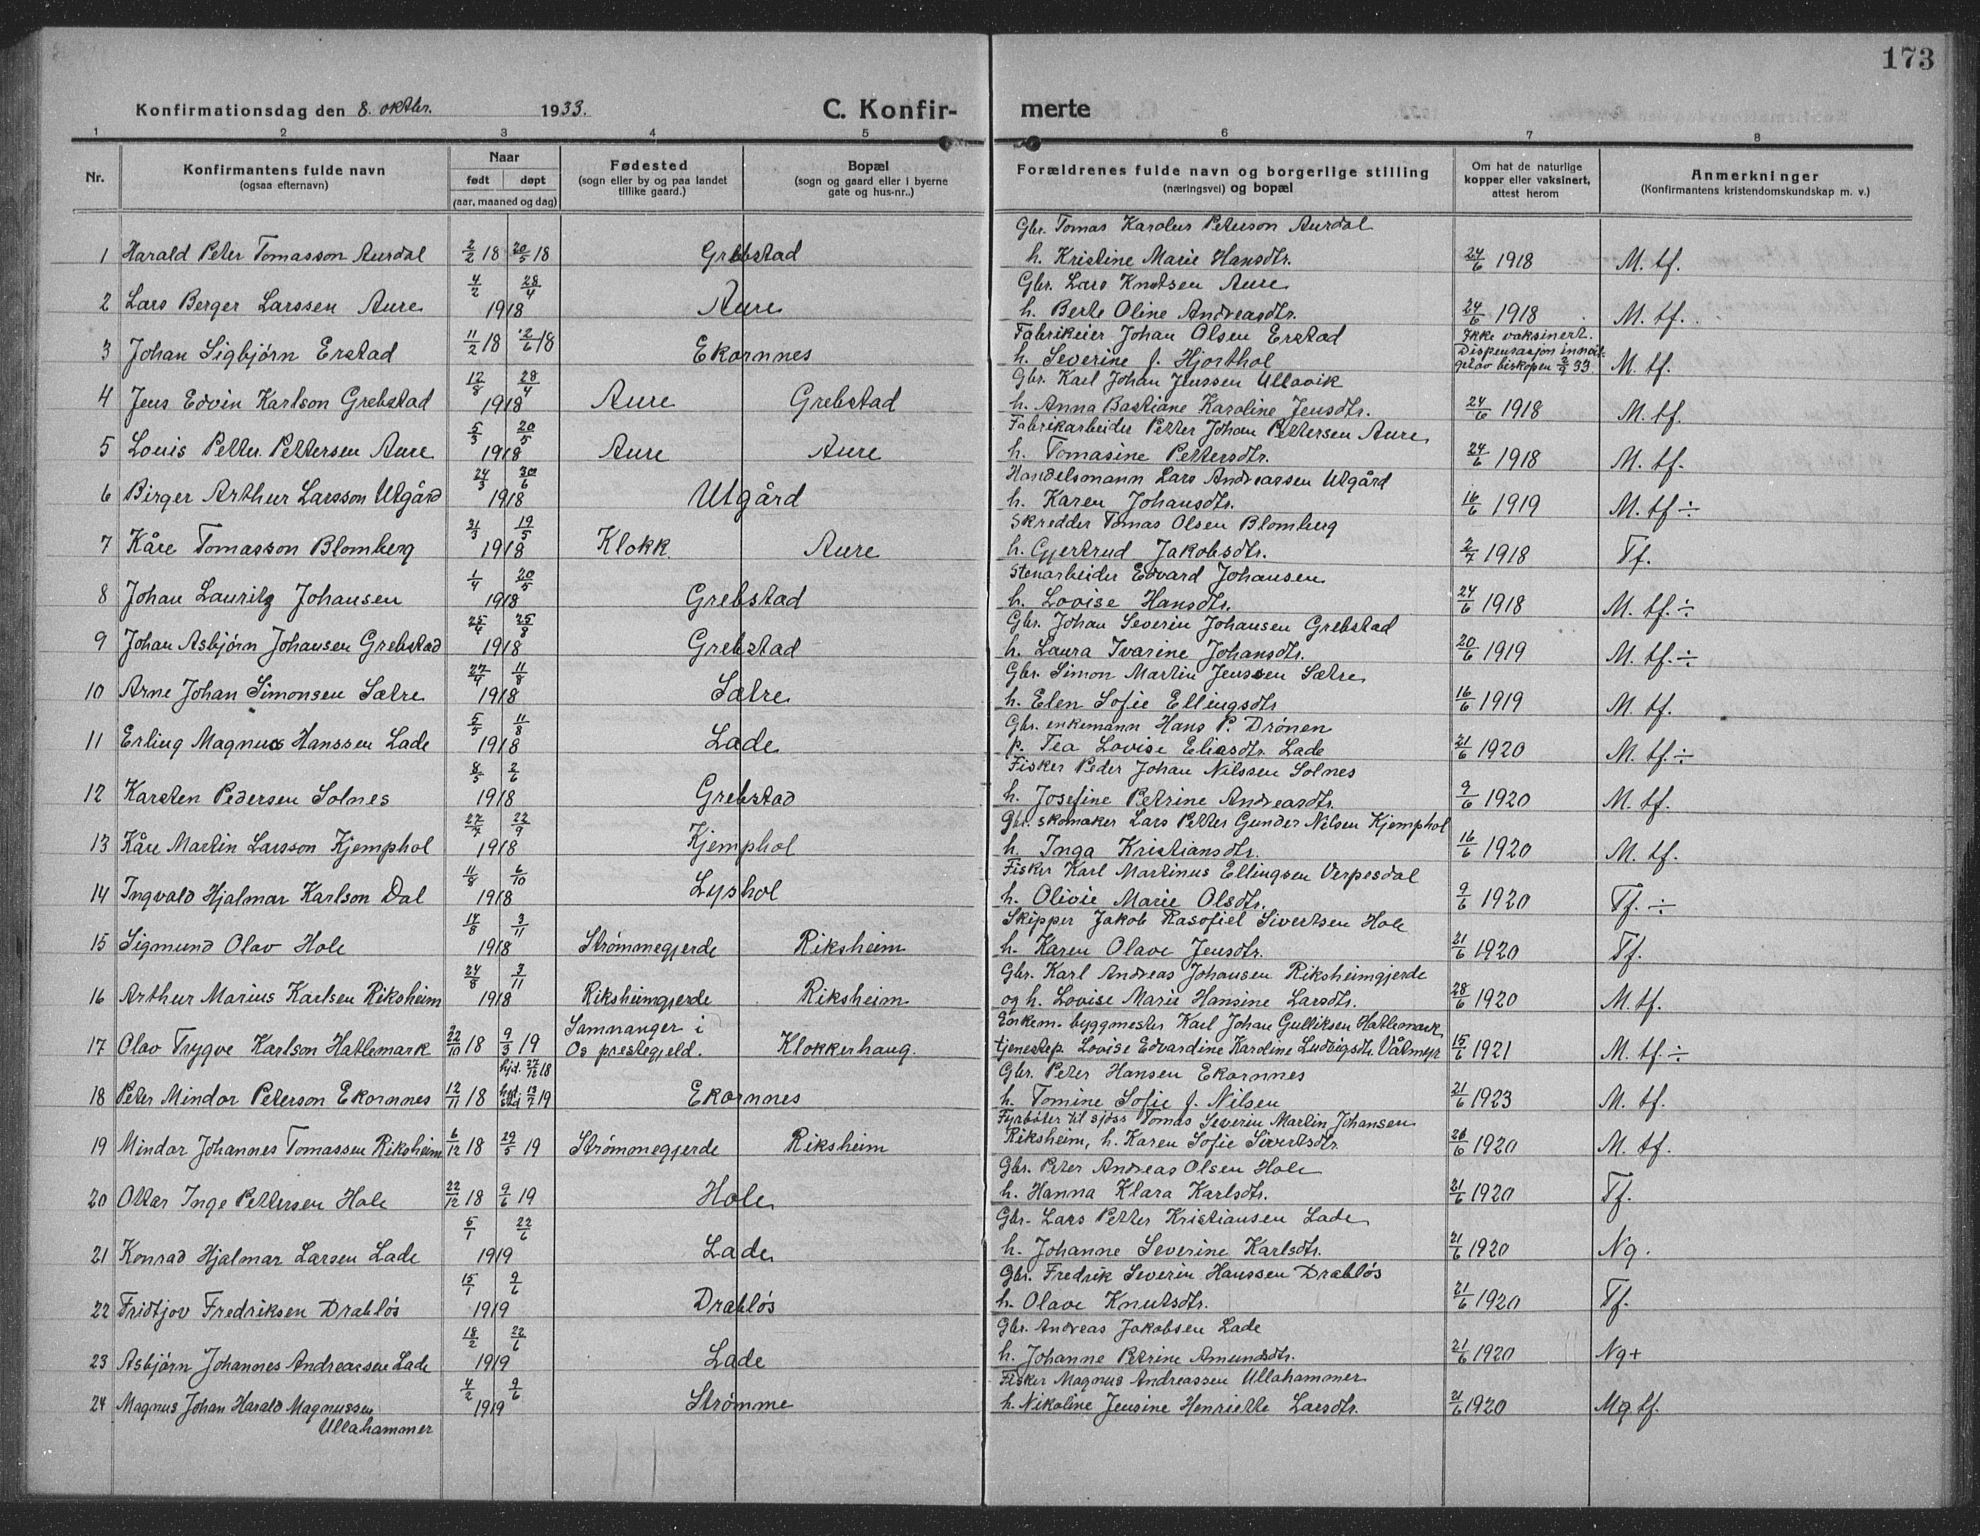 173
Konfirmationsdag den 8. oktbr. 1933. C. Konfir- merte
1 2 3 4 5 6 7 8
Nr. Konfirmantens fulde navn (ogsaa efternavn) Naar født døpt (aar, maaned og dag) Fødested (sogn eller by og paa landet tillike gaard.) Bopæl (sogn og gaard eller i byerne gate og hus-nr..) Forældrenes fulde navn og borgerlige stilling (næringsvei) og bopæl Om hat de naturlige kopper eller vaksinert, attest herom Anmerkninger (Konfirmantens kristendomskundskap m. v.)
Gbr. Tomas Karolus Peterson Aurdal
1 Harald Peter Tomasson Aurdal 2/2 18 20/5 18 Grebstad h. Kristine Marie Hansdtr. 24/6 1918 M. tf.
4/2 28/4 Gbr. Lars Knutsen Aure
2 Lars Berger Larssen Aure 1918 Aure h. Berte Oline Andreasdtr. 24/6 1918 M. tf.
Fabrikeier Johan Olsen Erstad Ikke vaksinert.
3 Johan Sigbjørn Erstad 11/2 18 2/6 18 Ekornnes h. Severine f. Hjorthol Dispensasjon innvil-
get av biskopen 33. M. tf.
12/8 28/4 Gbr. Karl Johan Jenssen Ullavik
4 Jens Edvin Karlson Grebstad 1918 Aure Grebstad h. Anna Bastiane Karoline Jensdtr. 24/6 1918 M. tf.
5/3 20/5 Fabrikarbeider Petter Johan Pettersen Aure
5 Louis Petter Pettersen Aure 1918 Aure Aure h. Tomasine Pettersdtr. 24/6 1918 M. tf.
24/3 30/6 Handelsmann Lars Andreassen Utgård
6 Birger Arthur Larsson Utgård 1918 Utgård h. Karen Johansdtr. 16/6 1919 M. tf ÷
31/3 19/5 Skredder Tomas Olsen Blomberg
7 Kåre Tomasson Blomberg 1918 Klokk. Aure h. Gjertrud Jakobsdtr. 2/7 1918 Tf.
1/4 20/5 Stenarbeider Edvard Johansen
8 Johan Lauritz Johansen 1918 Grebstad h. Lovise Hansdtr. 24/6 1918 M. tf. ÷
25/4 25/8 Gbr. Johan Severin Johansen Grebstad
9 Johan Asbjørn Johansen Grebstad 1918 Grebstad h. Laura Ivarine Johansdtr. 20/6 1919 M. tf. ÷
27/4 11/8 Gbr. Simon Martin Jenssen Sætre
10 Arne Johan Simonsen Sætre 1918 Sætre h. Elen Sofie Ellingsdtr 16/6 1919 M. tf.
5/5 11/8 Gbr. enkemann Hans P. Drønen
11 Erling Magnus Hanssen Lade 1918 Lade p. Tea Lovise Eliasdtr. Lade 21/6 1920 M. tf. ÷
8/5 2/6 Fisker Peder Johan Nilssen Solnes
12 Karsten Pedersen Solnes 1918 Grebstad h. Josefine Petrine Andreasdtr. 9/6 1920 M. tf.
27/7 22/9 Gbr. skomaker Lars Petter Gunder Nilsen Kjemphol
13 Kåre Martin Larsson Kjemphol 1918 Kjemphol h. Inga Kristiansdtr. 16/6 1920 M. tf.
11/8 6/10 Fisker Karl Martinus Ellingsen Verpesdal
14 Ingvald Hjalmar Karlson Dal 1918 Lyshol h. Olivie Marie Olsdtr. 9/6 1920 Tf. ÷
17/8 3/11 Skipper Jakob Rasofiel Sivertsen Hole
15 Sigmund Olav Hole 1918 Strømmegjerde Riksheim h. Karen Olave Jensdtr. 21/6 1920 Tf.
24/8 3/11 Gbr. Karl Andreas Johansen Riksheimgjerde
16 Arthur Marius Karlsen Riksheim 1918 Riksheimgjerde Riksheim og h. Lovise Marie Hansine Larsdtr. 28/6 1920 M. tf.
Samnanger i Enkem. byggmester Karl Johan Gulliksen Hatlemark
17 Olav Trygve Karlson Hatlemark 22/10 18 9/3 19 Os prestegjeld. Klokkerhaug. tjenestep. Lovise Edvardine Karoline Ludvigsdtr. Våtmyr 15/6 1921 M. tf. ÷
hjd. 27/12 18 Gbr. Peter Hansen Ekornnes
18 Peter Mindor Peterson Ekornnes 12/11 18 13/7 19 Ekornnes h. Tomine Sofie f. Nilsen 21/6 1923 M. tf.
Fyrbøter til sjøss Tomas Severin Martin Johansen
19 Mindor Johannes Tomassen Riksheim 6/12 18 29/5 19 Strømmegjerde Riksheim Riksheim, h. Karen Sofie Sivertsdtr. 26/6 1920 M. tf.
Gbr. Peter Andreas Olsen Hole
20 Ottar Inge Pettersen Hole 22/12 18 9/6 19 Hole h. Hanna Klara Karlsdtr. 21/6 1920 Tf.
5/1 22/6 Gbr. Lars Petter Kristiansen Lade
21 Konrad Hjalmar Larsen Lade 1919 Lade h. Johanne Severine Karlsdtr. 21/6 1920 Ng.
15/1 9/6 Gbr. Fredrik Severin Hanssen Drabløs
22 Fridtjov Fredriksen Drabløs 1919 Drabløs h. Olave Knutsdtr. 21/6 1920 Tf.
18/2 22/6 Gbr. Andreas Jakobsen Lade
23 Asbjørn Johannes Andreassen Lade 1919 Lade h. Johanne Petrine Amundsdtr. 21/6 1920 Ng+
4/2 9/6 Fisker Magnus Andreassen Ullahammer
24 Magnus Johan Harald Magnussen 1919 Strømme h. Nikoline Jensine Henriette Larsdtr. 21/6 1920 Mg tf.
Ullahammer